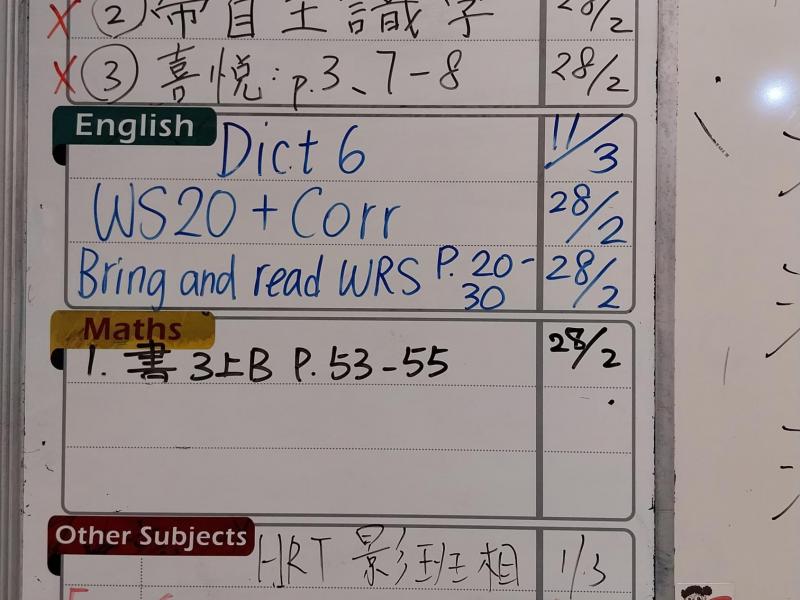 X ② 帶自主識字 28/2
X ③ 喜悅: p.3、7-8 28/2
English
Dict 6 11/3
WS20 + Corr 28/2
Bring and read WRS P. 20-30 28/2
Maths
1. 書 3上B P. 53-55 28/2
Other Subjects
HRT 影班相 1/3